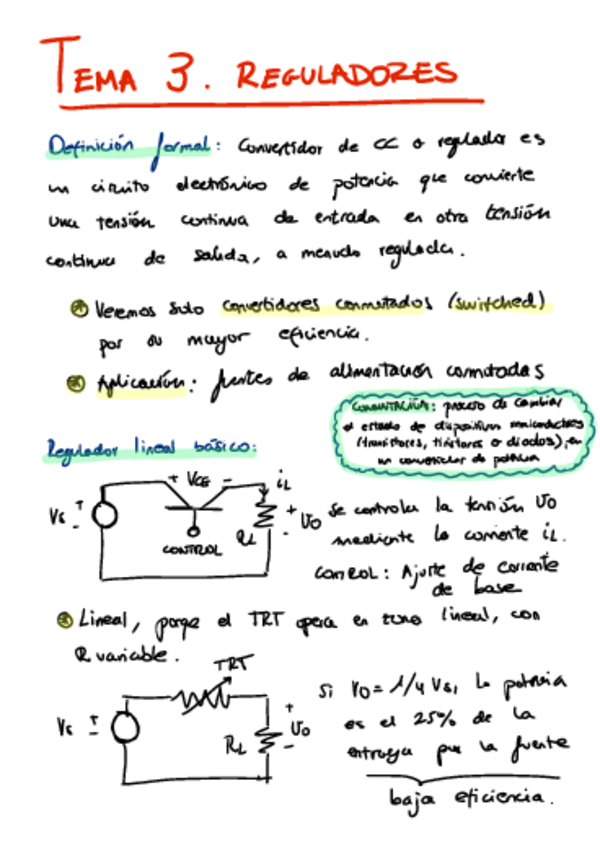 TEMA 3. REGULADORES
Definición formal: Convertidor de CC o regulador es
un circuito electrónico de potencia que convierte
una tensión continua de entrada en otra tensión
continua de salida, a menudo regulada.
Veremos solo convertidores conmutados (switched)
por su mayor eficiencia.
Aplicación: fuentes de alimentación conmutadas
CONMUTACIÓN: proceso de cambiar
el estado de dispositivos semiconductores
(transistores, tiristores o diodos), en
un convertidor de potencia
Regulador lineal básico:
+ VCE -
iL
Vs + -
CONTROL
RL
+ Vo -
Se controla la tensión Vo
mediante la corriente iL.
CONTROL: Ajuste de corriente
de base
Lineal, porque el TRT opera en zona lineal, con
R variable.
TRT
Vs + -
RL
+ Vo -
Si Vo = 1/4 Vs, la potencia
es el 25% de la
entregada por la fuente
baja eficiencia.